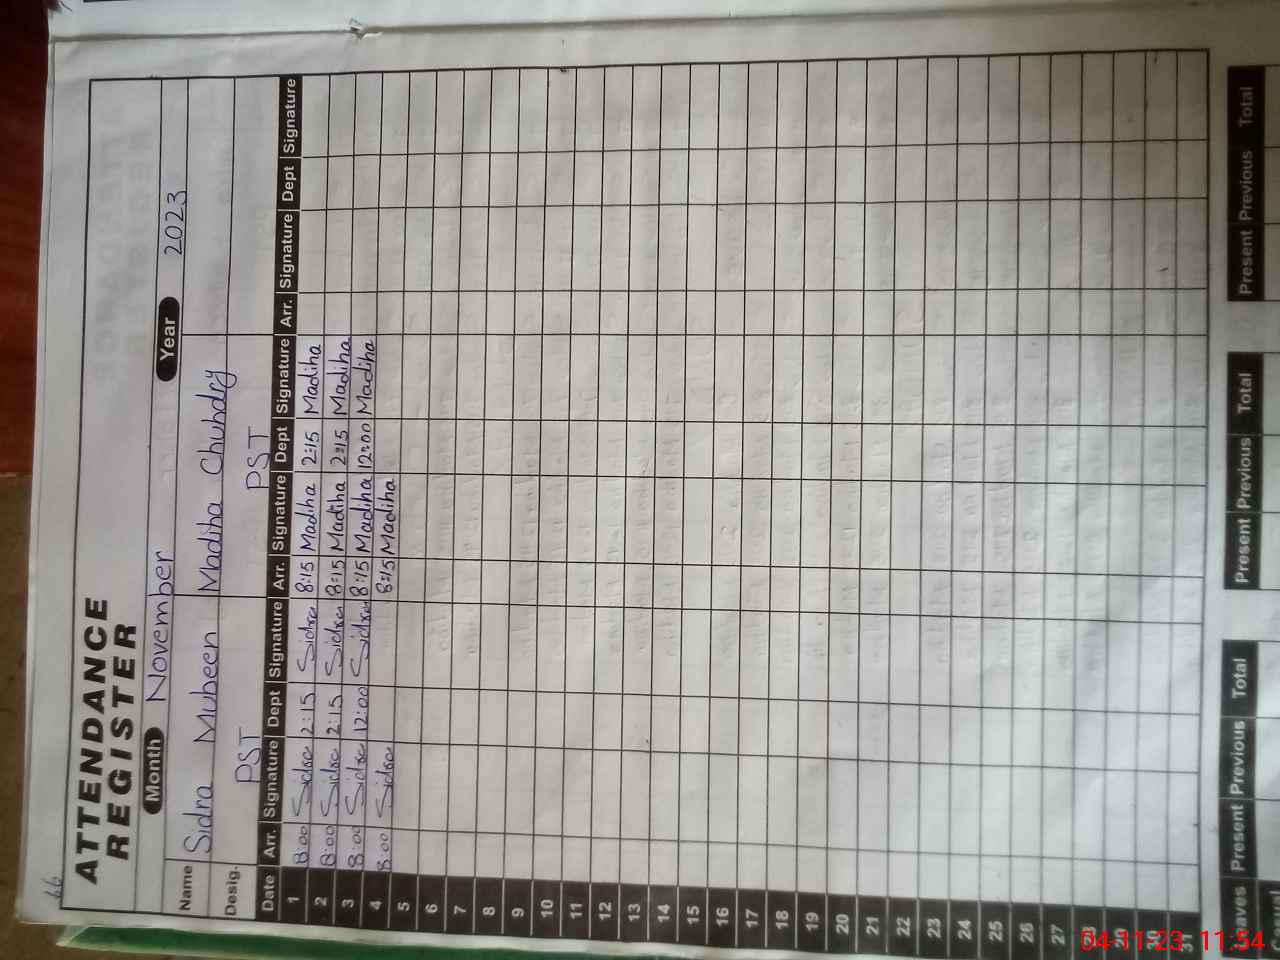 66
ATTENDANCE
REGISTER
Month November Year 2023
Name Sidra Mubeen Madiha Chuhdry
Desig. PST PST
Date Arr. Signature Dept Signature Arr. Signature Dept Signature Arr. Signature Dept Signature
1 8:00 Sidra 2:15 Sidra 8:15 Madiha 2:15 Madiha
2 8:00 Sidra 2:15 Sidra 8:15 Madiha 2:15 Madiha
3 8:00 Sidra 12:00 Sidra 8:15 Madiha 12:00 Madiha
4 8:00 Sidra 8:15 Madiha
5
6
7
8
9
10
11
12
13
14
15
16
17
18
19
20
21
22
23
24
25
26
27
28
29
30
31
Leaves Present Previous Total Present Previous Total Present Previous Total
04-11-23 11:54